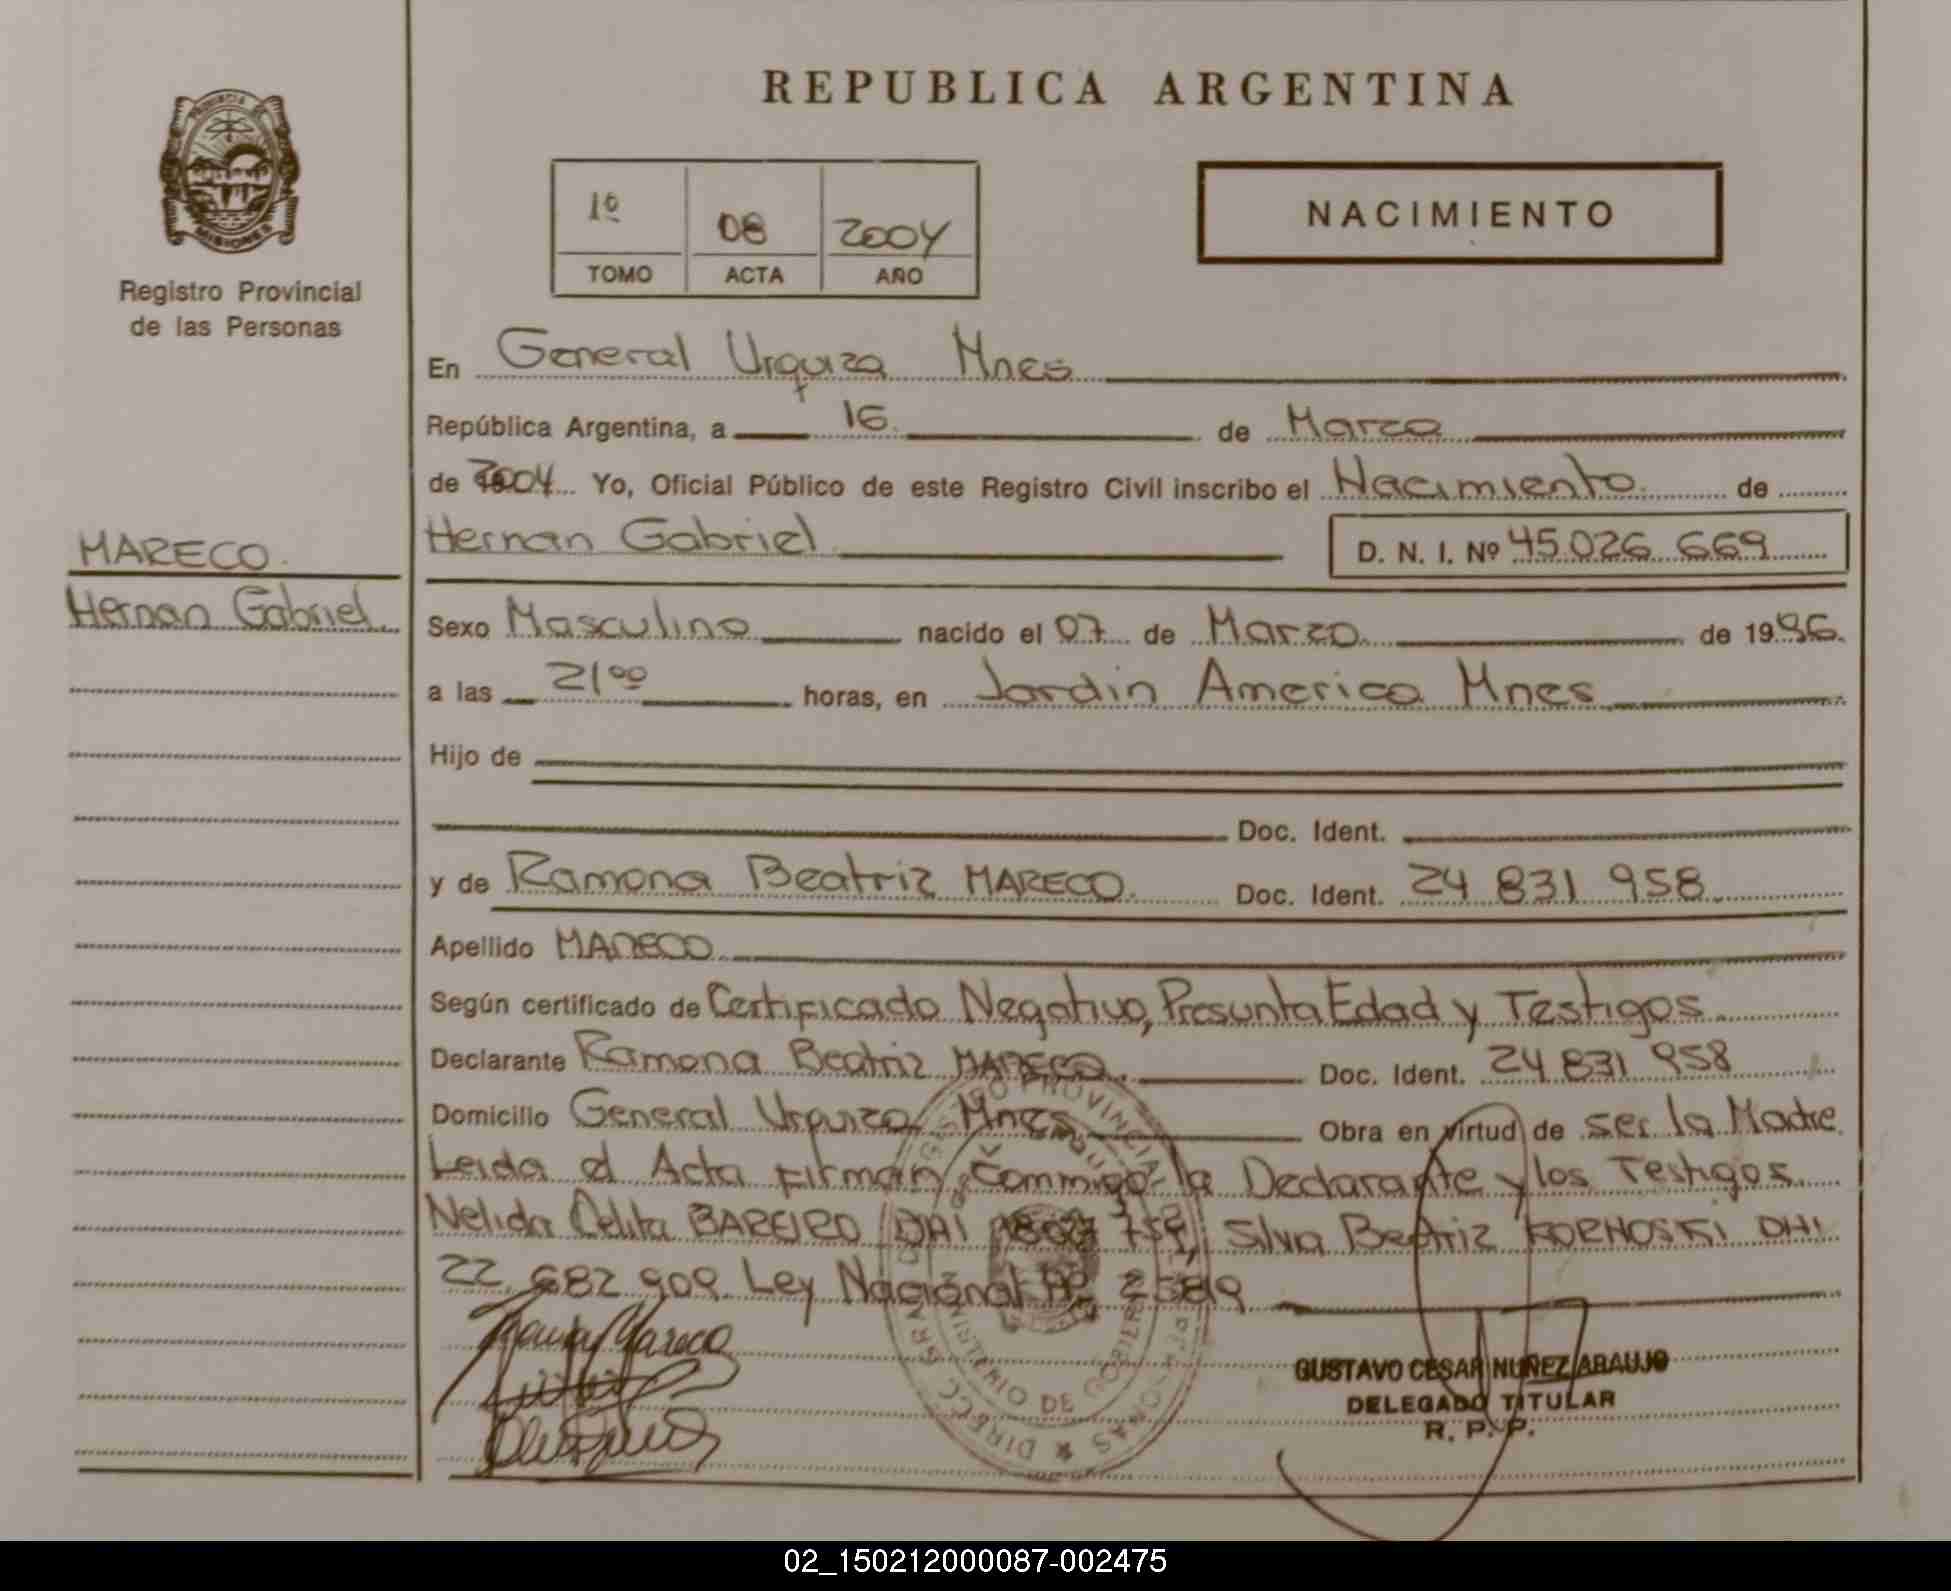 REPUBLICA ARGENTINA
PROVINCIA DE
MISIONES
Registro Provincial
de las Personas
1º 08 2004
TOMO ACTA AÑO
NACIMIENTO
En General Urquiza Mnes
República Argentina, a 16 de Marzo
de 2004 Yo, Oficial Público de este Registro Civil inscribo el Nacimiento de
MARECO
Hernan Gabriel
Hernan Gabriel D. N. I. Nº 45.026 669
Sexo Masculino nacido el 07 de Marzo de 1996
a las 21⁰⁰ horas, en Jardin America Mnes
Hijo de
Doc. Ident.
y de Ramona Beatriz MARECO. Doc. Ident. 24 831 958
Apellido MARECO
Según certificado de Certificado Negativo, Presunta Edad y Testigos
Declarante Ramona Beatriz MARECO Doc. Ident. 24 831 958
Domicilio General Urquiza Mnes Obra en virtud de ser la Madre
Leida el Acta firman conmigo la Declarante y los Testigos
Nelida Delita BAREIRO DNI Silva Beatriz KORNOSKI DNI
22.682 909 Ley Nacional Nº
GUSTAVO CESAR NUÑEZ ARAUJO
DELEGADO TITULAR
R. P. P.
02_150212000087-002475